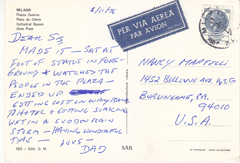 MILANO
Piazza Duomo
Place du Dôme
Cathedral Square
Dom Platz
6/1/76
PER VIA AEREA
PAR AVION
DEAR SIS
MADE IT - SAT AT
FOOT OF STATUE IN FORE-
GROUND & WATCHED THE
PEOPLE IN THE PLAZA -
ENDED UP
GETTING LOST IN WAY BACK
TO HOTEL & GETTING SOAKING
WET IN A SUDDEN RAIN
STORM - HAVING WONDERFUL
TIME - LOVE -
DAD
NANCY MARTELLI
1452 BELLEVUE AV. APT. G
BURLINGAME, CA.
94010
U.S.A.
SAR